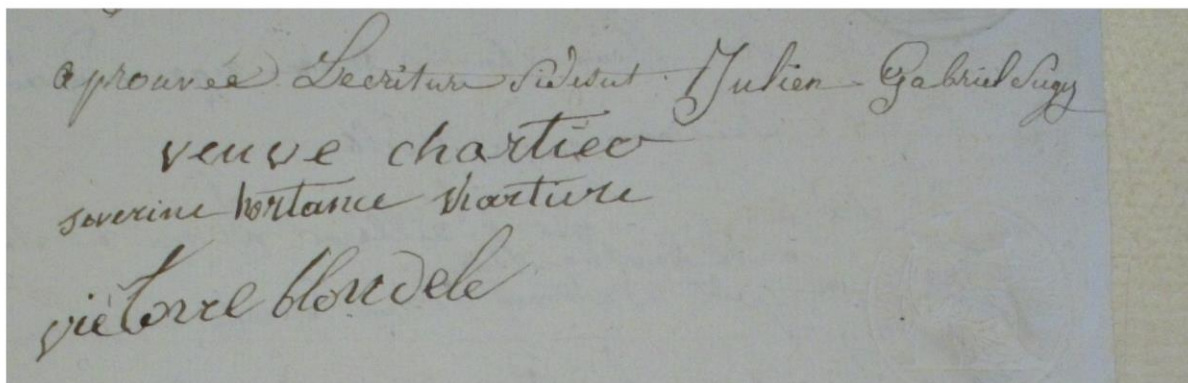 aprouvée Lecriture sidesut Julien Gabriel Sugy
veuve chartier
severine hortance chartiere
victoire blondele